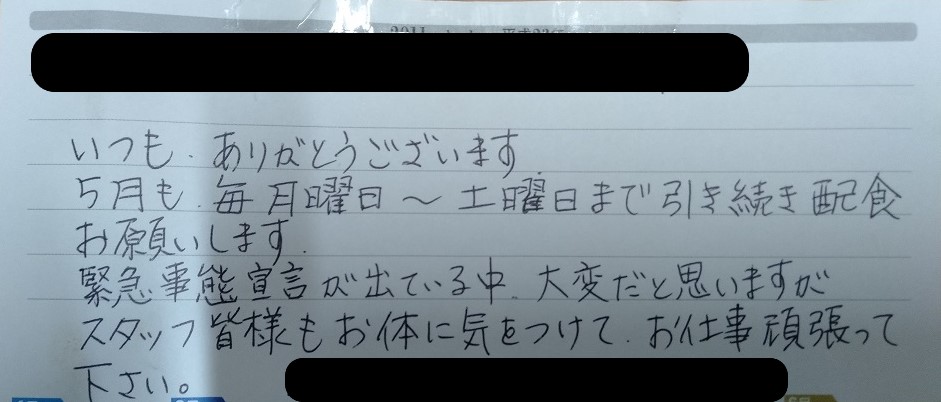 いつも、ありがとうございます。
5月も、毎月曜日〜土曜日まで引き続き配食
お願いします。
緊急事態宣言が出ている中、大変だと思いますが
スタッフ皆様もお体に気をつけて、お仕事頑張って
下さい。